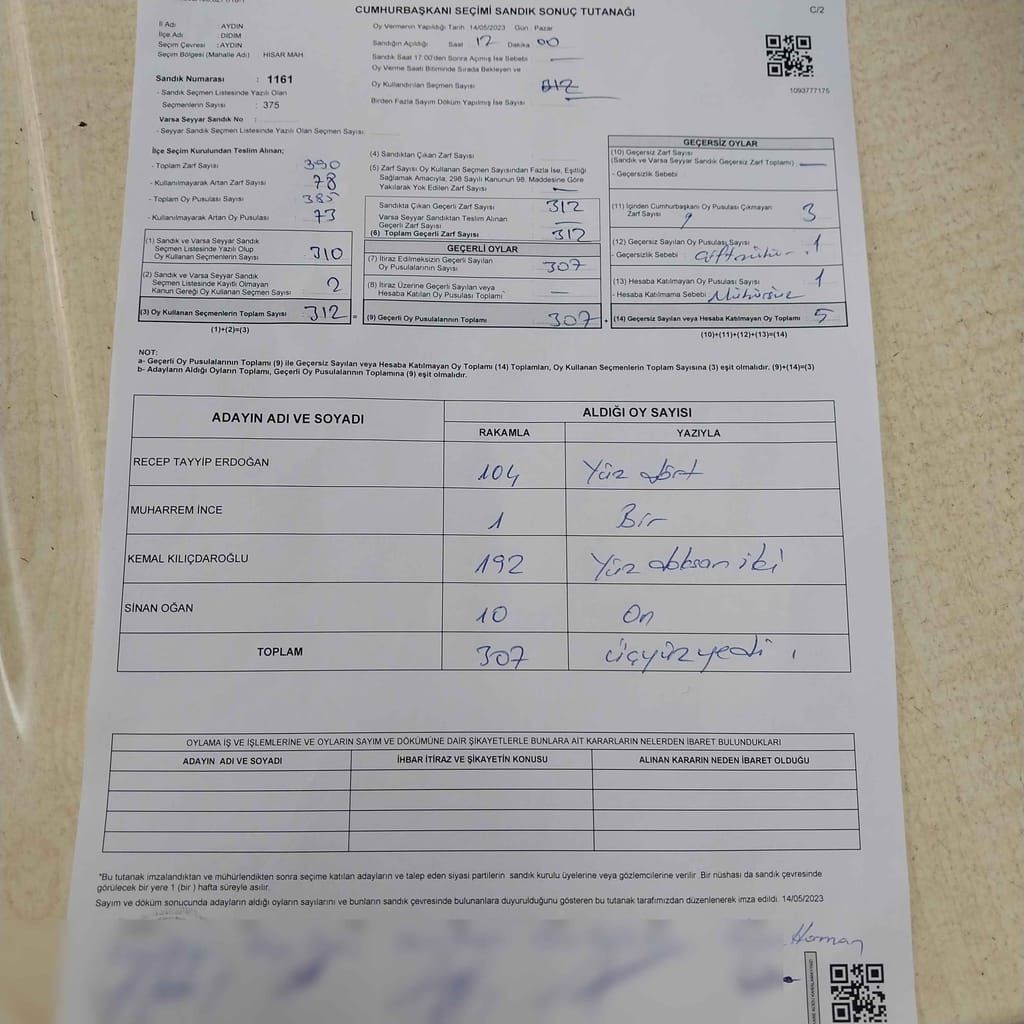 CUMHURBAŞKANI SEÇİMİ SANDIK SONUÇ TUTANAĞI
C/2
İl Adı : AYDIN
İlçe Adı : DİDİM
Seçim Çevresi : AYDIN
Seçim Bölgesi (Mahalle Adı) : HİSAR MAH
Sandık Numarası : 1161
- Sandık Seçmen Listesinde Yazılı Olan
Seçmenlerin Sayısı : 375
Varsa Seyyar Sandık No :
- Seyyar Sandık Listesinde Yazılı Olan Seçmen Sayısı
Oy Vermenin Yapıldığı Tarih 14/05/2023 Gün : Pazar
Sandığın Açıldığı Saat 17 Dakika 00
Sandık Saat 17:00'den Sonra Açmış İse Sebebi
Oy Verme Saati Bitiminde Sırada Bekleyen ve
Oy Kullandırılan Seçmen Sayısı
Birden Fazla Sayım Döküm Yapılmış İse Sayısı
1093777175
İlçe Seçim Kurulundan Teslim Alınan;
- Toplam Zarf Sayısı 390
- Kullanılmayarak Artan Zarf Sayısı 78
- Toplam Oy Pusulası Sayısı 385
- Kullanılmayarak Artan Oy Pusulası 73
(1) Sandık ve Varsa Seyyar Sandık
Seçmen Listesinde Yazılı Olup
Oy Kullanan Seçmenlerin Sayısı 310
(2) Sandık ve Varsa Seyyar Sandık
Seçmen Listesinde Kayıtlı Olmayan
Kanun Gereği Oy Kullanan Seçmen Sayısı 2
(3) Oy Kullanan Seçmenlerin Toplam Sayısı 312 =
(1)+(2)=(3)
(4) Sandıktan Çıkan Zarf Sayısı
(5) Zarf Sayısı Oy Kullanan Seçmen Sayısından Fazla İse, Eşitliği
Sağlamak Amacıyla; 298 Sayılı Kanunun 98. Maddesine Göre
Yakılarak Yok Edilen Zarf Sayısı —
Sandıkta Çıkan Geçerli Zarf Sayısı 312
Varsa Seyyar Sandıktan Teslim Alınan
Geçerli Zarf Sayısı —
(6) Toplam Geçerli Zarf Sayısı 312
GEÇERLİ OYLAR
(7) İtiraz Edilmeksizin Geçerli Sayılan
Oy Pusulalarının Sayısı 307
(8) İtiraz Üzerine Geçerli Sayılan veya
Hesaba Katılan Oy Pusulası Toplamı —
(9) Geçerli Oy Pusulalarının Toplamı 307 +
GEÇERSİZ OYLAR
(10) Geçersiz Zarf Sayısı
(Sandık ve Varsa Seyyar Sandık Geçersiz Zarf Toplamı) —
- Geçersizlik Sebebi
(11) İçinden Cumhurbaşkanı Oy Pusulası Çıkmayan
Zarf Sayısı 3
(12) Geçersiz Sayılan Oy Pusulası Sayısı 1
- Geçersizlik Sebebi
(13) Hesaba Katılmayan Oy Pusulası Sayısı 1
- Hesaba Katılmama Sebebi Mühürsüz
(14) Geçersiz Sayılan veya Hesaba Katılmayan Oy Toplamı 5
(10)+(11)+(12)+(13)=(14)
NOT:
a- Geçerli Oy Pusulalarının Toplamı (9) ile Geçersiz Sayılan veya Hesaba Katılmayan Oy Toplamı (14) Toplamları, Oy Kullanan Seçmenlerin Toplam Sayısına (3) eşit olmalıdır. (9)+(14)=(3)
b- Adayların Aldığı Oyların Toplamı, Geçerli Oy Pusulalarının Toplamına (9) eşit olmalıdır.
ADAYIN ADI VE SOYADI
ALDIĞI OY SAYISI
RAKAMLA YAZIYLA
RECEP TAYYİP ERDOĞAN 104 Yüz dört
MUHARREM İNCE 1 Bir
KEMAL KILIÇDAROĞLU 192 Yüz doksan iki
SİNAN OĞAN 10 On
TOPLAM 307 üçyüzyedi
OYLAMA İŞ VE İŞLEMLERİNE VE OYLARIN SAYIM VE DÖKÜMÜNE DAİR ŞİKAYETLERLE BUNLARA AİT KARARLARIN NELERDEN İBARET BULUNDUKLARI
ADAYIN ADI VE SOYADI İHBAR İTİRAZ VE ŞİKAYETİN KONUSU ALINAN KARARIN NEDEN İBARET OLDUĞU
*Bu tutanak imzalandıktan ve mühürlendikten sonra seçime katılan adayların ve talep eden siyasi partilerin sandık kurulu üyelerine veya gözlemcilerine verilir. Bir nüshası da sandık çevresinde
görülecek bir yere 1 (bir ) hafta süreyle asılır.
Sayım ve döküm sonucunda adayların aldığı oyların sayılarını ve bunların sandık çevresinde bulunanlara duyurulduğunu gösteren bu tutanak tarafımızdan düzenlenerek imza edildi. 14/05/2023